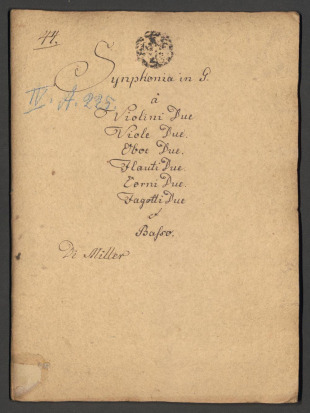 44.
Synphonia in G.
IV. A. 225.
à
Violini Due
Viole Due.
Oboe Due.
Flauti Due.
Corni Due.
Fagotti Due
et
Basso.
Di Miller